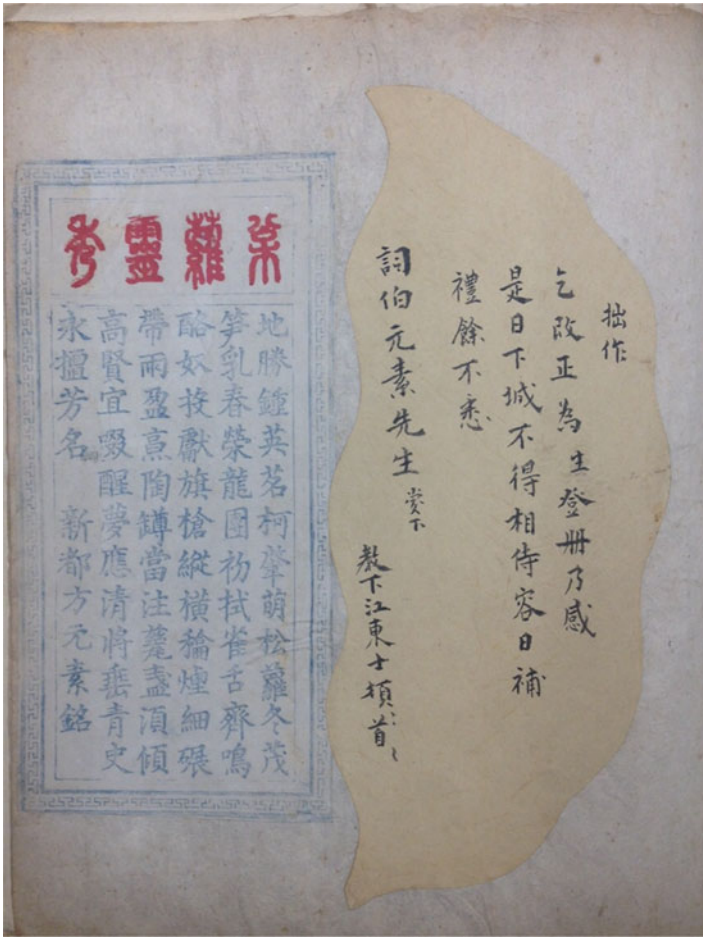 拙作
乞改正為生登冊乃感
是日下城不得相侍容日補
禮餘不悉
詞伯元素先生 賞下
教下江東士頓首〻
枀蘿靈秀
地勝鍾英茗柯肇萌松蘿冬茂
笋乳春榮龍團初拭雀舌齊鳴
酪奴投獻旗槍縱橫煙細碾
帶雨盈烹陶罇當注盞湏傾
高賢宜啜醒夢應清將垂青史
永擅芳名 新都方元素銘